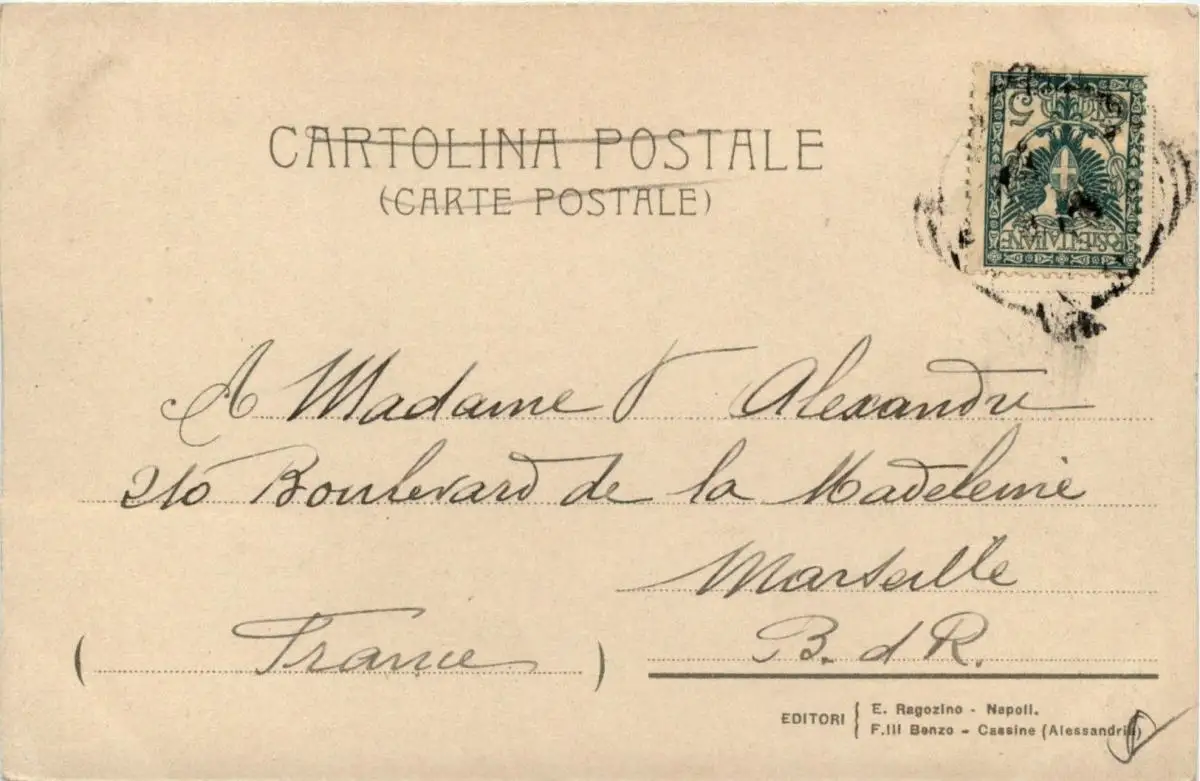 CARTOLINA POSTALE
(CARTE POSTALE)
5 5
POSTE ITALIANE
A Madame Alexandre
210 Boulevard de la Madeleine
Marseille
B. d R.
( France )
EDITORI { E. Ragozino - Napoli.
F.lli Benzo - Cassine (Alessandria)